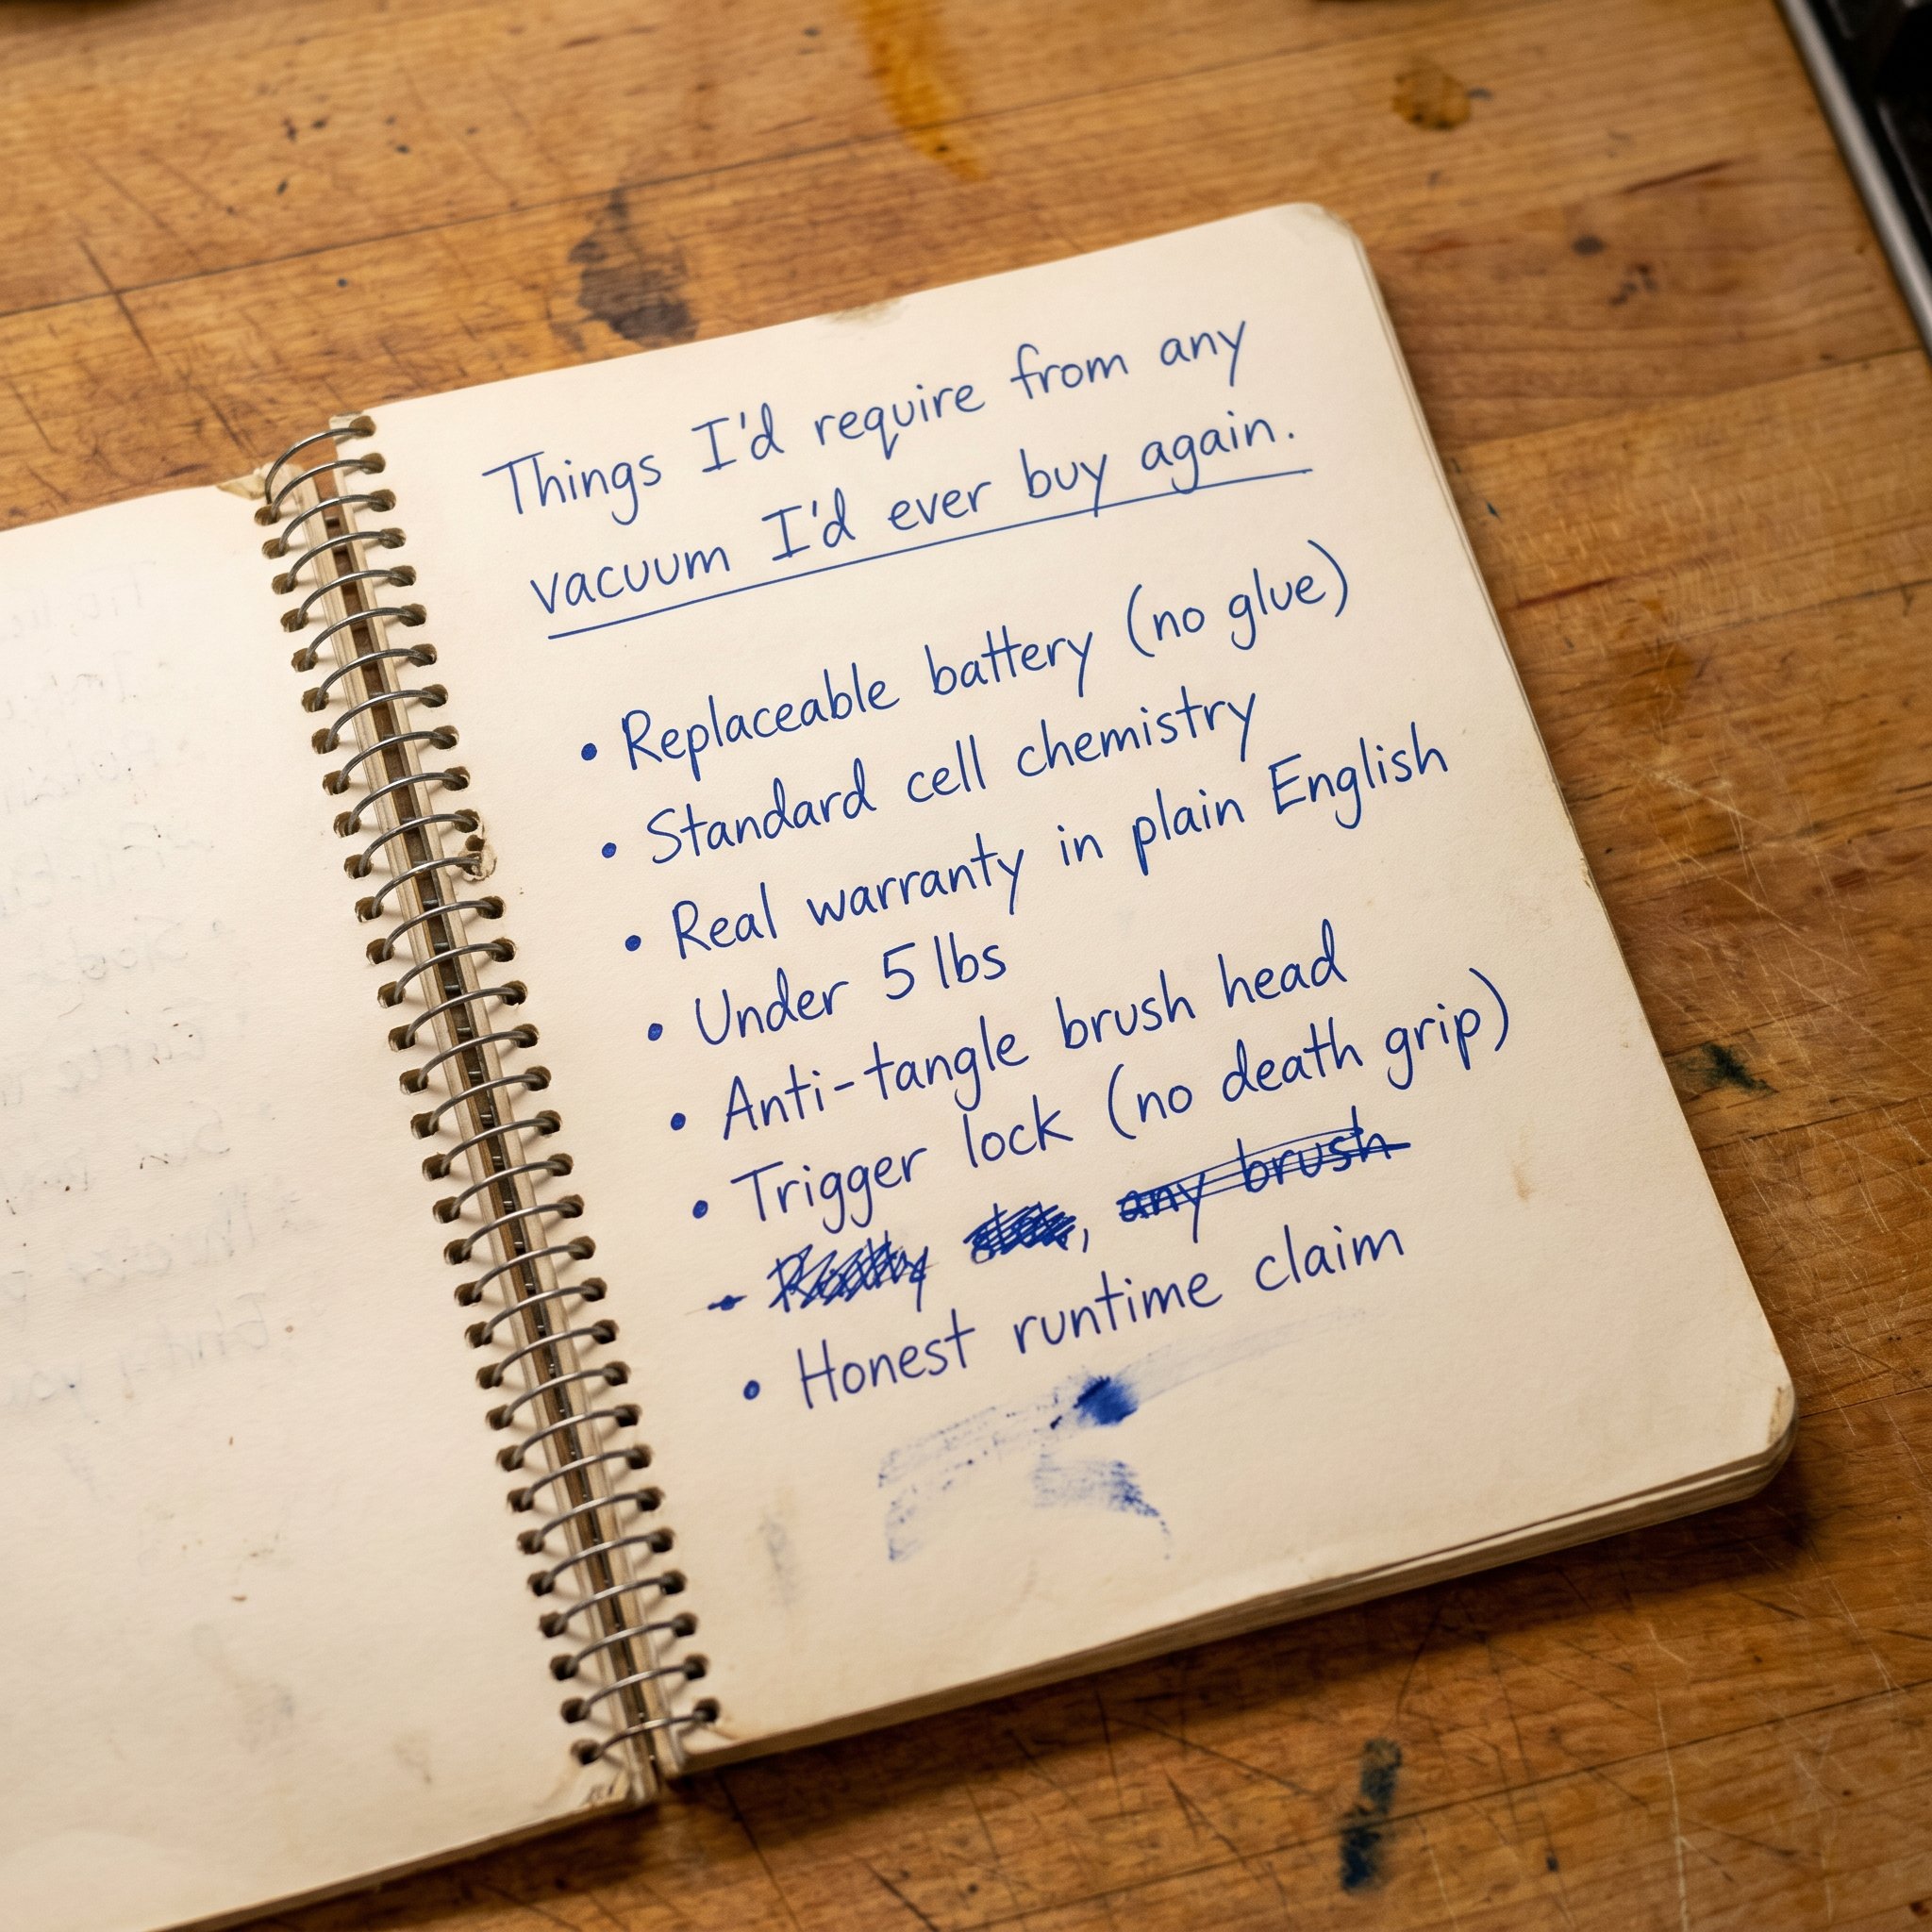 Things I'd require from any
vacuum I'd ever buy again.
• Replaceable battery (no glue)
• Standard cell chemistry
• Real warranty in plain English
• Under 5 lbs
• Anti-tangle brush head
• Trigger lock (no death grip)
any brush
• Honest runtime claim